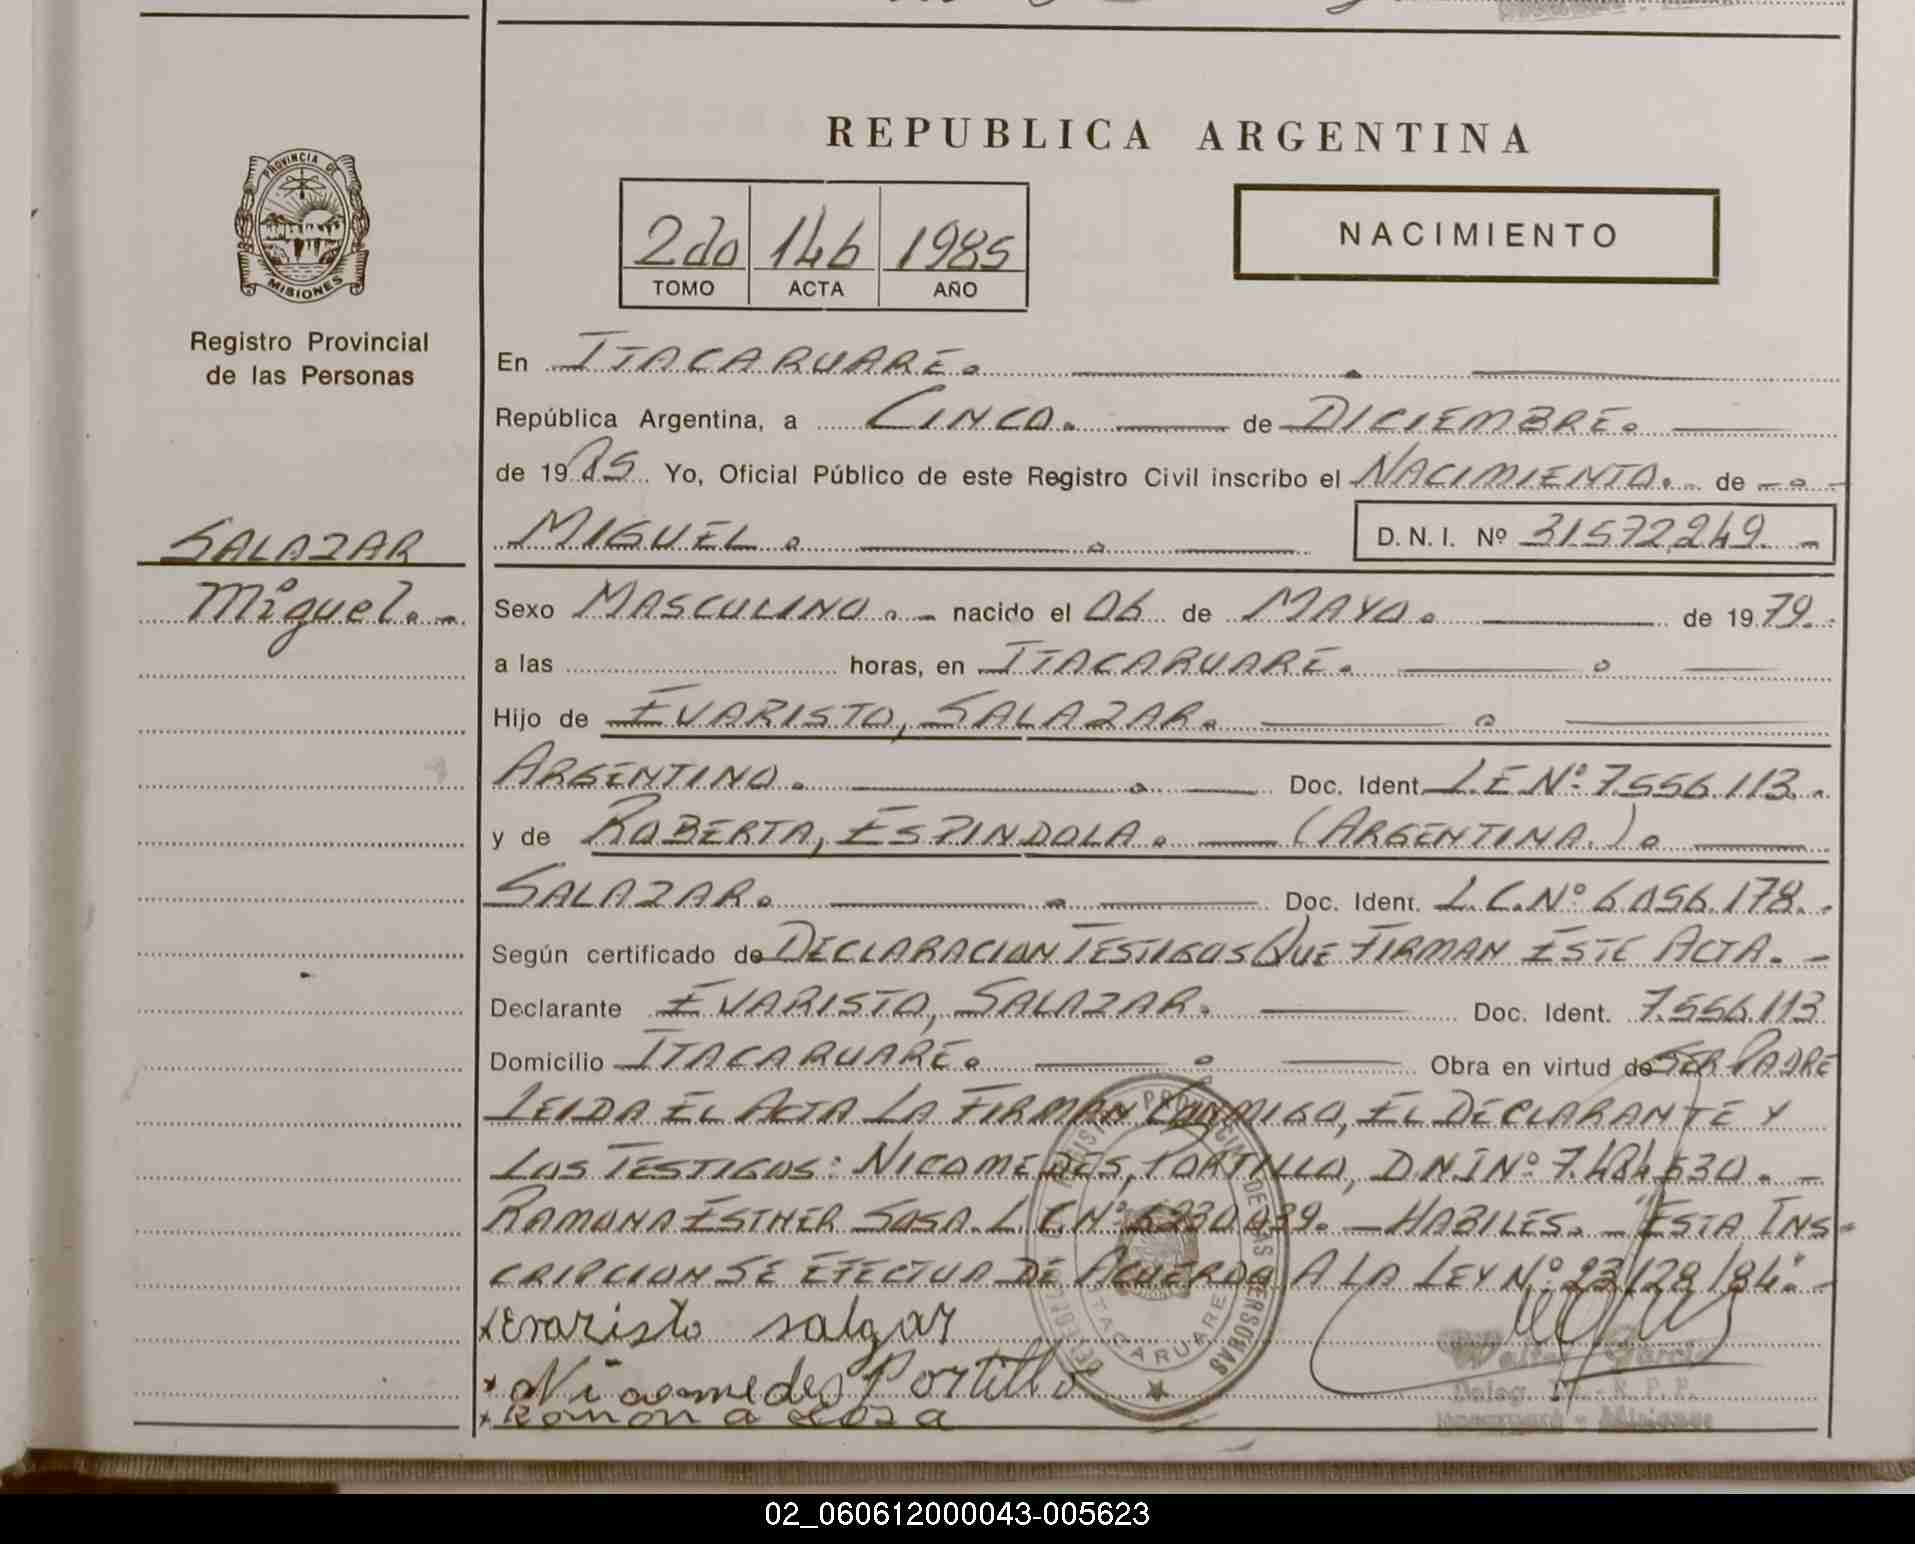 REPUBLICA ARGENTINA
PROVINCIA DE MISIONES
2do 146 1985
TOMO ACTA AÑO
NACIMIENTO
Registro Provincial
de las Personas
En ITACARUARE.
República Argentina, a CINCO. de DICIEMBRE.
de 1985 Yo, Oficial Público de este Registro Civil inscribo el NACIMIENTO. de
SALAZAR
Miguel.-
MIGUEL. D.N.I. Nº 31.572.249.-
Sexo MASCULINO.- nacido el 06 de MAYO. de 1979.
a las horas, en ITACARUARE.
Hijo de EVARISTO, SALAZAR.
ARGENTINO. Doc. Ident. L.E Nº 7.556.113.
y de ROBERTA, ESPINDOLA. (ARGENTINA.).
SALAZAR. Doc. Ident. L.C.Nº 6.056.178.
Según certificado de DECLARACION TESTIGOS QUE FIRMAN ESTE ACTA.-
Declarante EVARISTO, SALAZAR. Doc. Ident. 7.556.113
Domicilio ITACARUARE. Obra en virtud de SER PADRE
LEIDA EL ACTA LA FIRMAN CONMIGO, EL DECLARANTE Y
LOS TESTIGOS: NICOMEDES, PORTILLO, DNI Nº 7.484.630.-
RAMONA ESTHER SOSA. L.C Nº 039.- HABILES.- "ESTA INS-
CRIPCION SE EFECTUA DE ACUERDO A LA LEY Nº 23/128/84".-
x Evaristo salazar
x Nicomedes Portillo
x Ramona sosa
DE LAS PERSONAS
ITACARUARE
Walter Garcia
Deleg. R.P.P.
Itacaruaré - Misiones
02_060612000043-005623